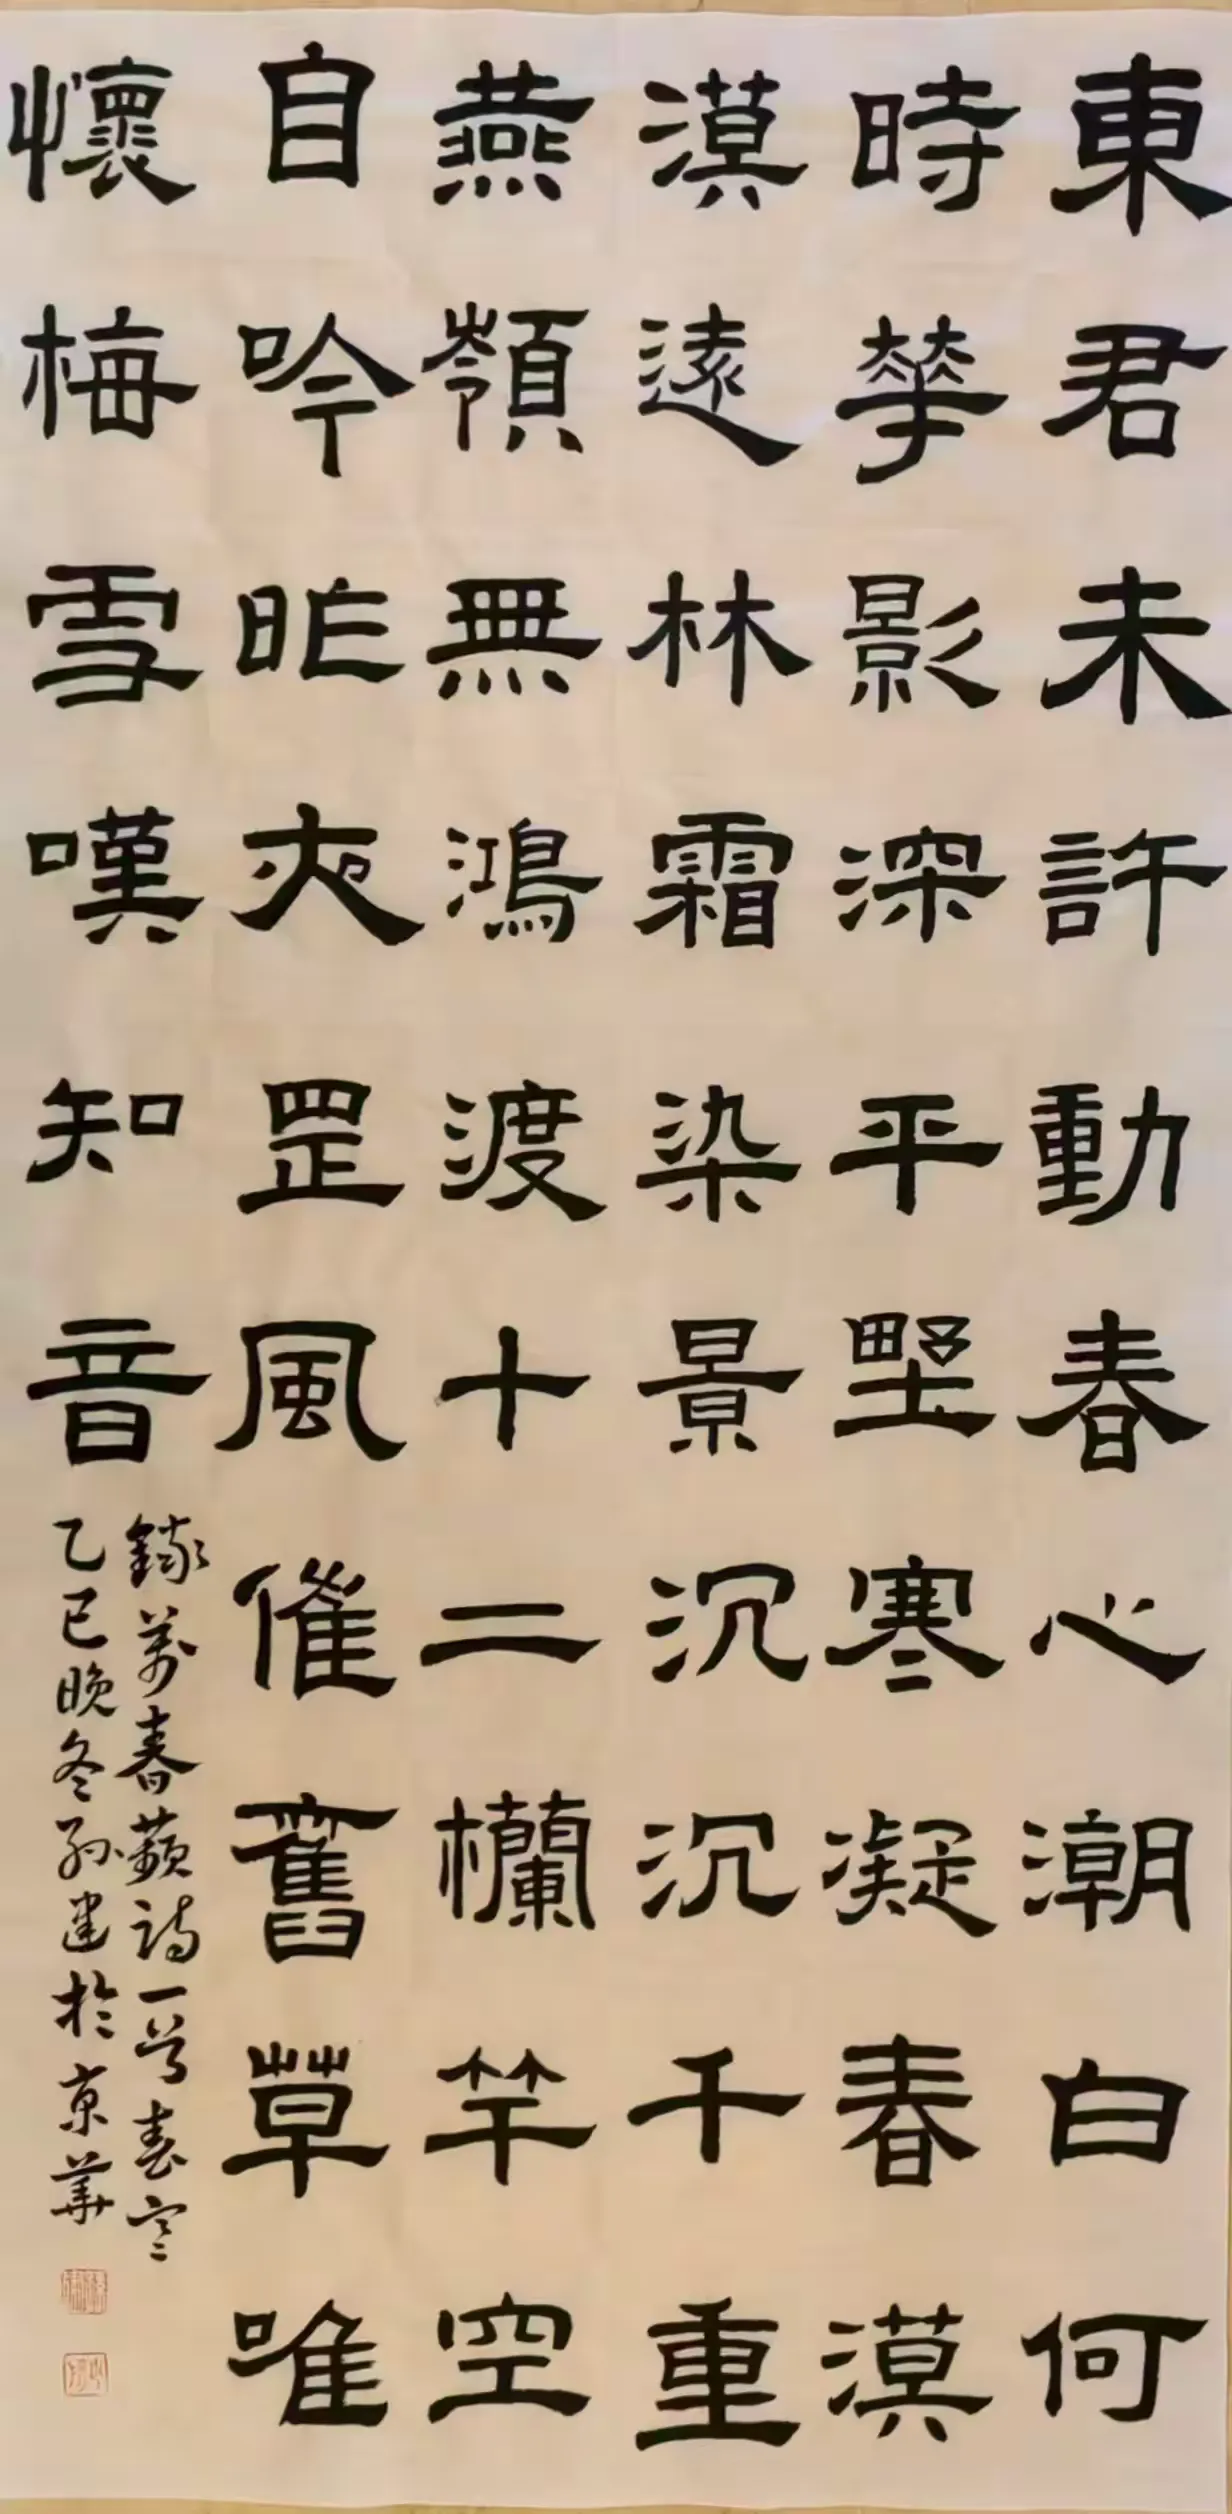 東君未許動春心潮白何
時華影深平墅寒凝春漠
漠遠林霜染景沉沉千重
燕嶺無鴻渡十二欄竿空
自吟昨夜罡風催舊草唯
懷梅雪嘆知音
錄萬春蘋詩一首春寒
乙巳晚冬孫建於京華